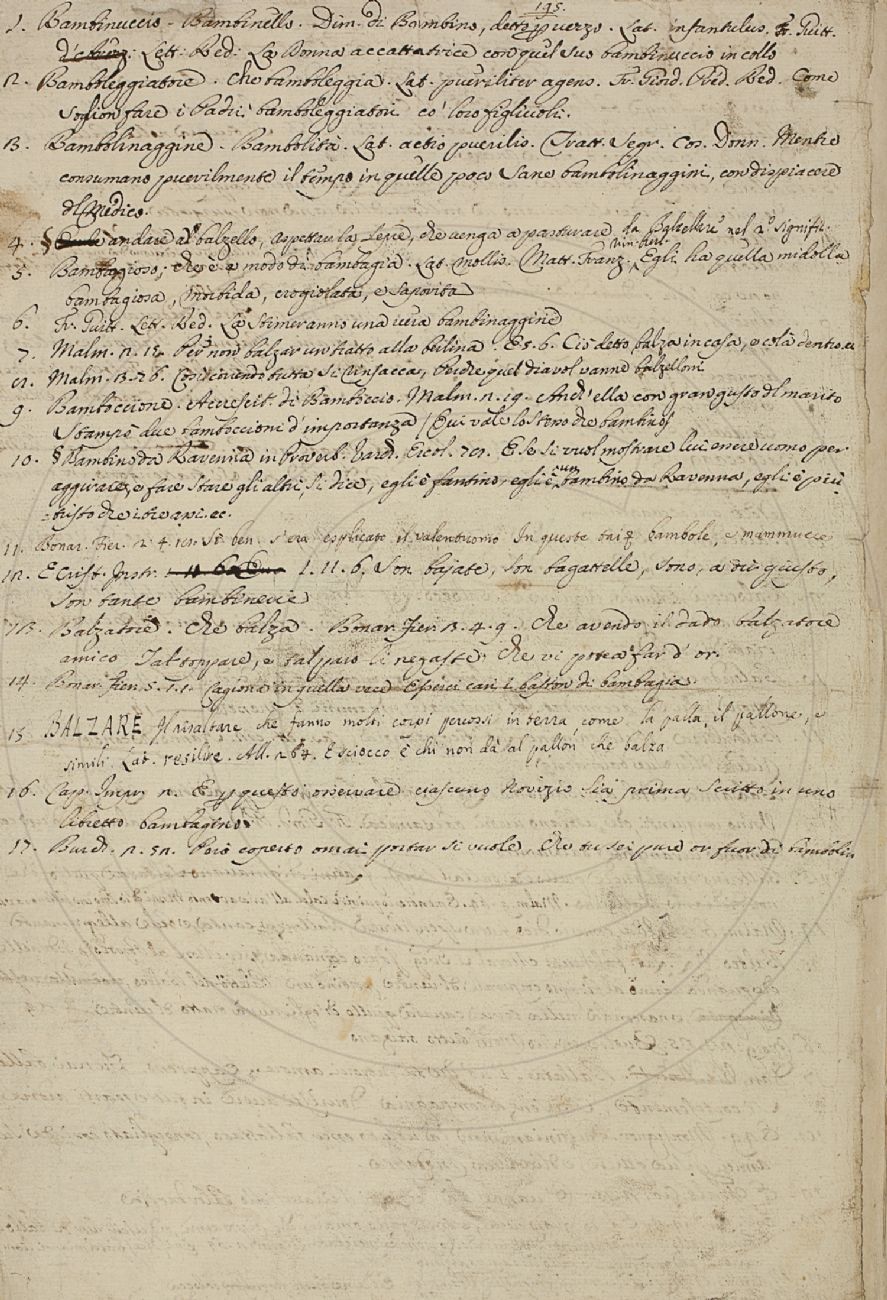 145.
1. Bambinuccio - Bambinello. Dim. di Bambino, detto p vezzo. Lat. infantulus. Fr. Guitt.
Lett. Red. La Donna accattatrice con quel suo bambinuccio in collo
2. Bamboleggiatore. Che bamboleggia. Lat. pueriliter agens. Fr. Giord. Pred. Red. Come
soglion fare i Padri bamboleggiatori co' loro figliuoli.
13. Bambolinaggine. Bambolità. Lat. actio puerilis. Tratt. Segr. Cos. Donn. Mentre
consumano puerilmente il tempo in quelle poco sane bambolinaggini, con dispiacere
del Medico.
4. § andare al balzello, aspettar la Lepre, che venga a pasturare. da nel 2.° signific.
5. Bambagioso, che è a modo di bambagia. Lat. mollis. Matt. Franz. rim. burl. Egli ha quella midolla
bambagiosa, morbida, crogiolata, e saporita
6. Fr. Guitt. Lett. Red. La stimeranno una vera bambinaggine
7. Malm. 2. 15. Per non balzar un tratto alla berlina. E 5. 6. Ciò detto balza in casa, e colà dentro
Malm. 3. 26. Così vivendo tutta si rinsacca, che quel diavol vanne balzelloni
9. Bamboccione. Accrescit. di Bamboccio. Malm. 2. 19. Ond' ella con gran gusto del marito
Stampò due bamboccioni d' importanza / Qui vale lo stesso che bambino/
10. § Bambino da Ravenna in Proverb. Varch. Ercol. E se si vuol mostrare lui essere uomo per
aggirare, e fare stare gli altri, si dice, egli è fantino, egli è un bambino da Ravenna, egli è più
tristo che i tre assi. ec.
11. Bonar. Fier. 2. 4. St. ben. s'era esplicato il valentuomo In queste tai bambole, e mammucce
12. E Crist. Instr. 1. 11. 6. Son bajate, son bagattelle, sono, a dir giusto,
Son tante bambinerie
13. Balzatore. Che balza. Bonar. Fier. 3. 4. 9. Che avendo il dado balzatore
amico Tal toppare, e tal paro li negaste, Che vi potea far d' or.
14. Bonar. Fier. 5. 5. 1. Cagione in quella vece Esserci cari i baston di bambagia.
15. BALZARE Il risaltare che fanno molti corpi percossi in terra, come la palla, il pallone, e
simili. Lat. resilire. All. 264. E sciocco è chi non dà al pallon che balza
16. Cap. Impr. 2. E p questo osservare ciascuno Novizio sia prima scritto in uno
libretto bambagino.
17. Burch. 2. 52. Però coperto omai portar si vuole, Che tu sei pure or fuor di bambolin